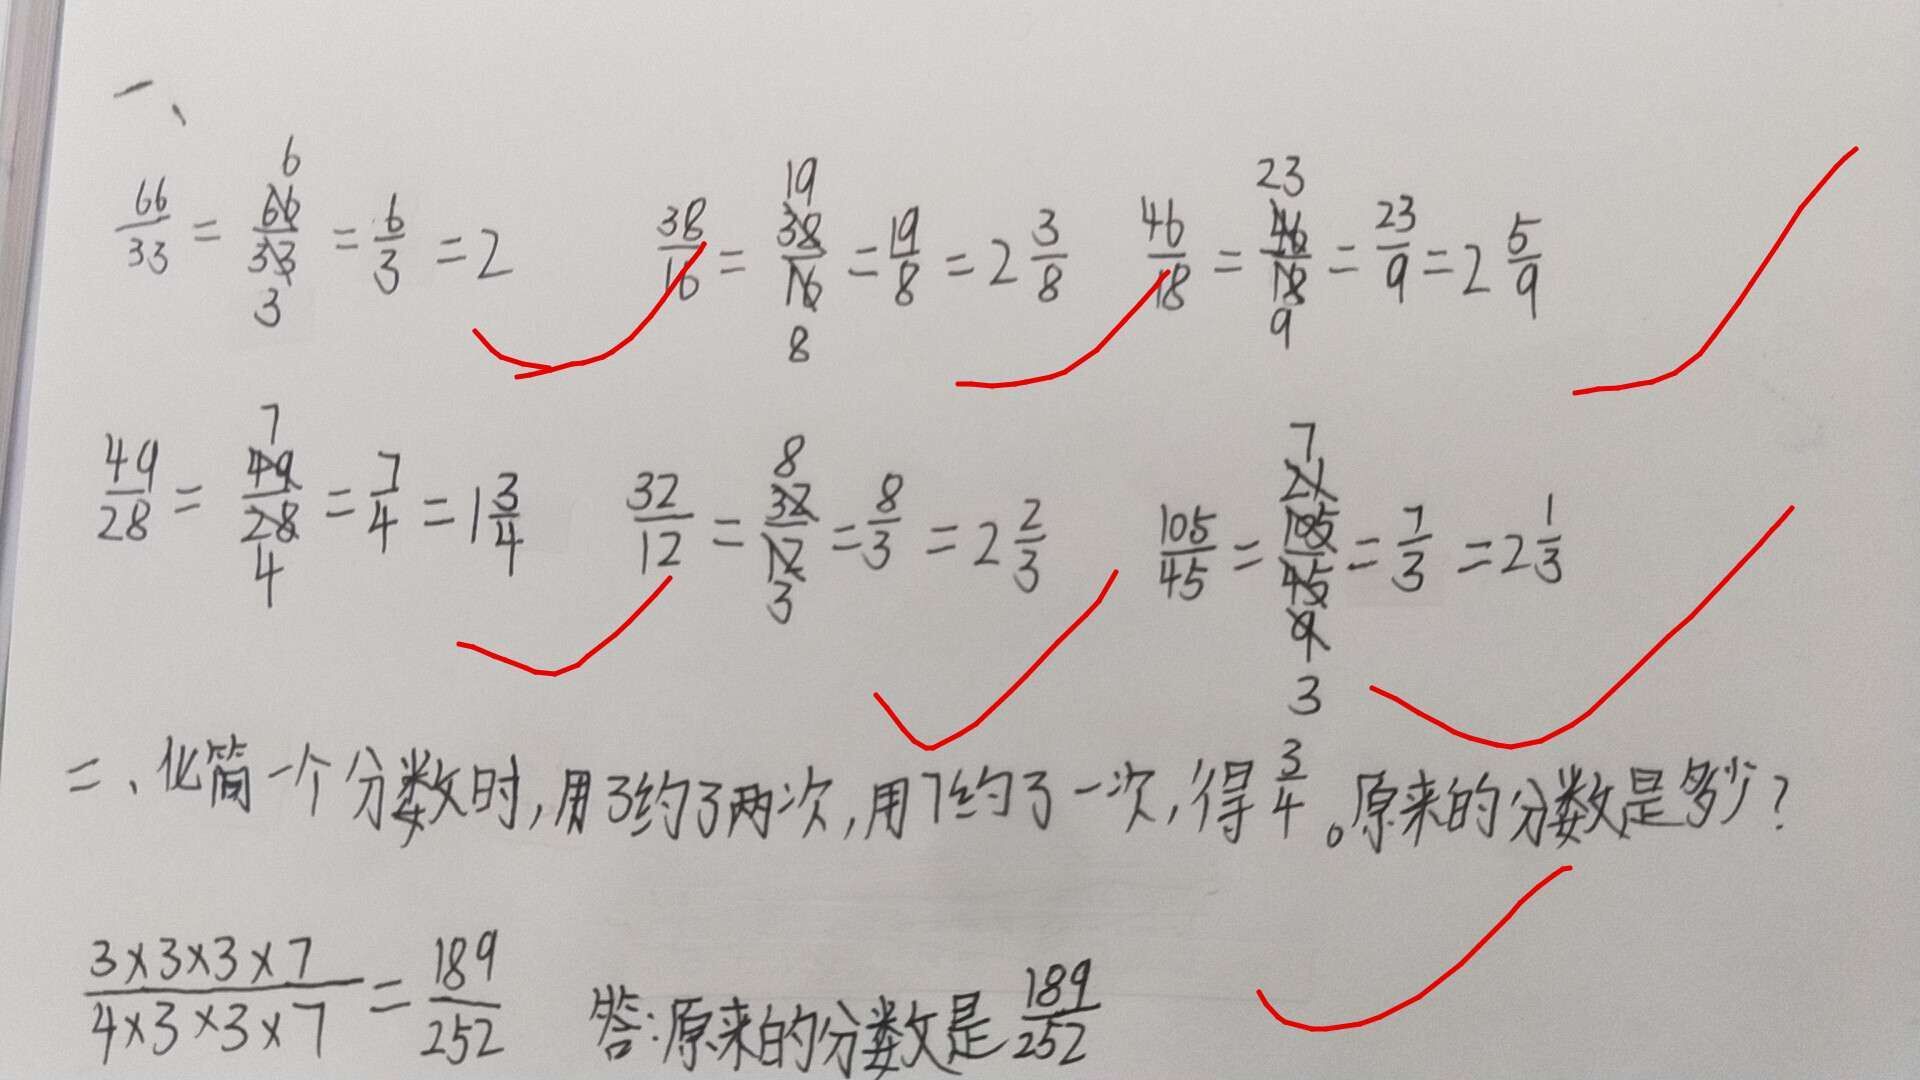 一、
66/33 = 66/33 (6/3) = 6/3 = 2  38/16 = 38/16 (19/8) = 19/8 = 2 3/8  46/18 = 46/18 (23/9) = 23/9 = 2 5/9
49/28 = 49/28 (7/4) = 7/4 = 1 3/4  32/12 = 32/12 (8/3) = 8/3 = 2 2/3  105/45 = 105/45 (21/9) (7/3) = 7/3 = 2 1/3
二、化简一个分数时,用3约了两次,用7约了一次,得3/4。原来的分数是多少?
3×3×3×7/4×3×3×7 = 189/252  答:原来的分数是189/252